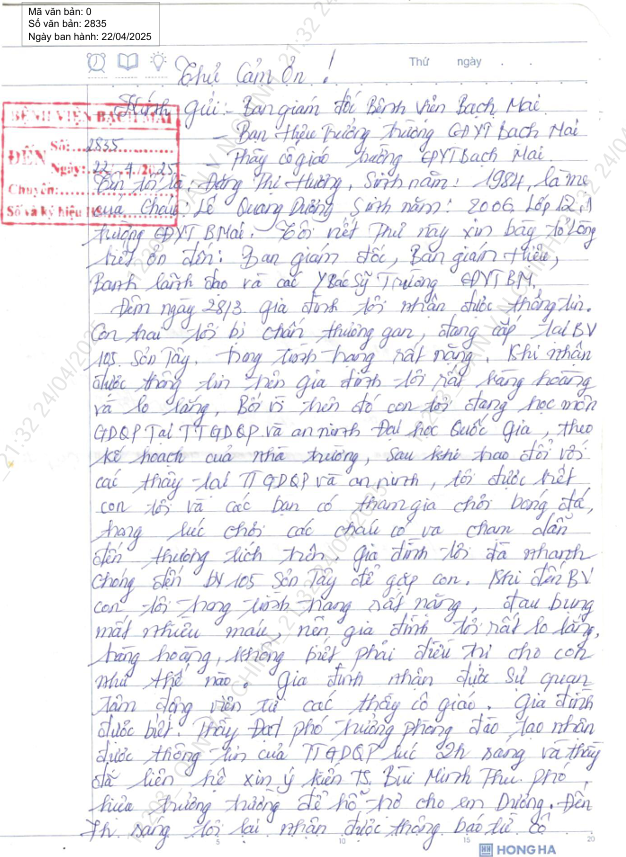 Mã văn bản: 0
Số văn bản: 2835
Ngày ban hành: 22/04/2025
Thứ ngày
Thư Cảm Ơn!
Kính gửi: - Ban giám đốc Bệnh viện Bạch Mai
- Ban Hiệu Trưởng trường CĐYT Bạch Mai
- Thầy cô giáo trường CĐYT Bạch Mai
BỆNH VIỆN BẠCH MAI
ĐẾN Số: 2835
Ngày: 22.4.2025
Chuyển:
Số và ký hiệu HS:
Tên tôi là: Đặng Thị Hương, Sinh năm: 1984, là mẹ
của Cháu: Lê Quang Dương Sinh năm: 2006 Lớp
trường CĐYT BMai. Tôi viết Thư này xin bày tỏ lòng
biết ơn đến: Ban giám đốc, Ban giám Hiệu,
Banh lãnh đạo và các Y Bác Sỹ Trường CĐYT BM.
Đêm ngày 28/3 gia đình tôi nhận được thông tin.
Con trai tôi bị chấn thương gan, đang cấp tại BV
105 Sơn Tây. Trong tình trạng rất nặng. Khi nhận
được thông tin trên gia đình tôi rất hàng hoàng
và lo lắng, Bởi vì trên đó con tôi đang học môn
GDQP Tại TTGDQP và an ninh Đại học Quốc Gia, theo
kế hoạch của nhà trường, sau khi trao đổi với
các thầy tại TTGDQP và an ninh, tôi được biết
con tôi và các bạn có tham gia chơi bóng đá,
trong lúc chơi các cháu có va chạm dẫn
đến thương tích trên. Gia đình tôi đã nhanh
chóng đến BV 105 Sơn Tây để gặp con. Khi đến BV
con tôi trong tình trạng rất nặng, đau bụng
mất nhiều máu, nên gia đình tôi rất lo lắng,
hàng hoàng, không biết phải điều trị cho con
như thế nào. Gia đình nhận được sự quan
tâm động viên từ các thầy cô giáo. Gia đình
được biết. Thầy Đạt phó trưởng phòng đào tạo nhận
được thông tin của TTGDQP lúc 2h sáng và thầy
đã liên hệ xin ý kiến TS Bùi Minh Thu phó
hiệu trưởng trường để hỗ trợ cho em Dương. Đến
7h sáng tôi lại nhận được thông báo từ cô
5 10 15 20
HONG HA